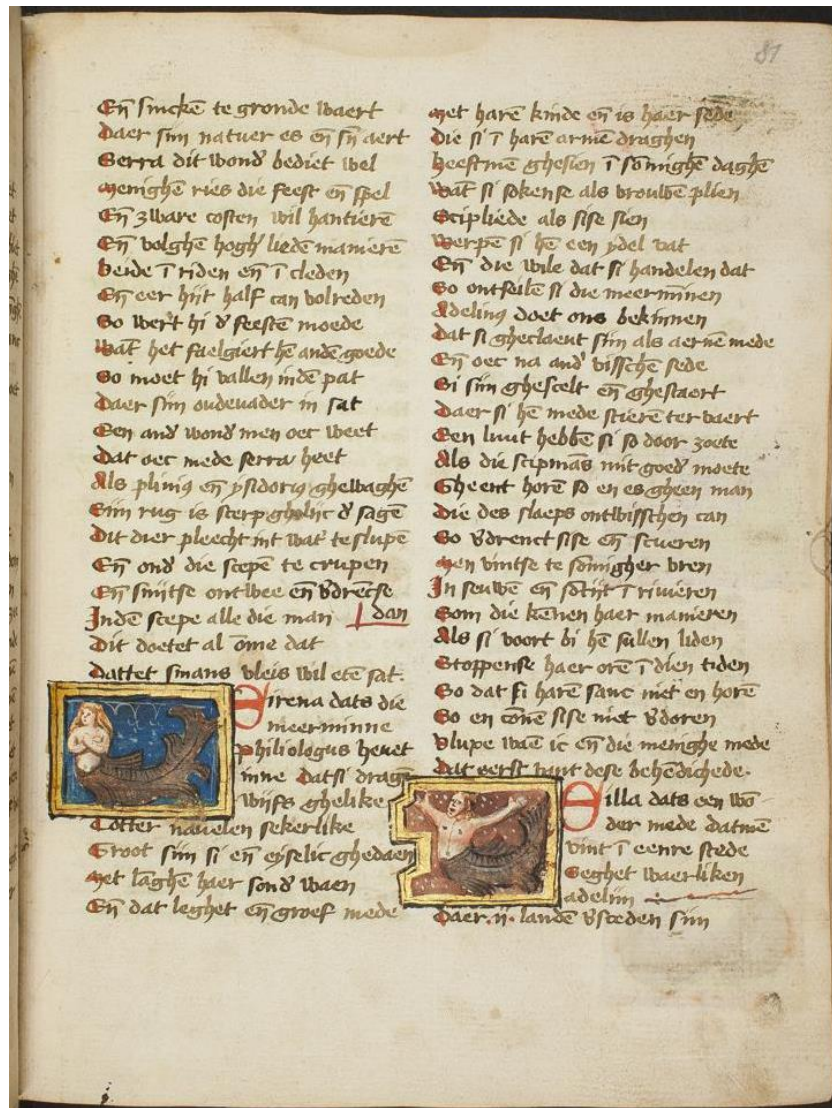 81
En̄ sinckē te gronde waert
Daer sijn natuer es en̄ sn̄ aert
Serra dit wond' bediet wel
Menighē ries die feest en̄ spel
En̄ zware costen wil hantierē
En̄ volghē hogh' liedē manierē
Beide ī riden en̄ ī cleden
En̄ eer hijt half can volreden
So wert hi d' feestē moede
Wāt het faelgiert hē andē goede
So moet hi vallen indē pat
Daer sijn oudevader in sat
Een and' wond' men oec weet
Dat oec mede serra heet
Als plinius en̄ ysidorius ghewaghē
Sijn rug is scerp ghelijc d' sagē
Dit dier pleecht int wat' te slupē
En̄ ond' die scepē te crupen
En̄ snijtse ontwee en̄ v'drēcse
Indē scepe alle die man dan
Dit doetet al ōme dat
Dattet smans vleis wil etē sat.
Sirena dats die
meerminne
Philiologus hevet
inne Datsi dragē
wijfs ghelike
Totter navelen sekerlike
Groot sijn si en̄ eyselic ghedaen
Met lāghē haer sond' waen
En̄ dat leghet en̄ groef mede
Met harē kinde en̄ is haer sede
Die si ī harē armē draghen
Heeftmē ghesien ī sōmighē daghē
Wāt si sokense als vrouwē plien
Scipliede als sise sien
Werpē si hē een ydel vat
En̄ die wile dat si handelen dat
So ontseilē si die meermīnen
Adelinus doet ons bekinnen
Dat si gheclaut sijn als aernē mede
En̄ oec na and' visschē sede
Si sijn ghescelt en̄ ghestaert
Daer si hē mede stierē ter vaert
Een luut hebbē si so door zoete
Als die scipmās mit goed' moete
Gheent horē so en es gheen man
Die des slaeps ontwisschen can
So v'drenct sise en̄ scueren
Men vintse te sōmigher uren
In seuwē en̄ sōtijt ī rivieren
Som die kēnen haer manieren
Als si voort bi hē sullen liden
Stoppense haer orē ī dien tiden
So dat si harē sanc niet en horē
So en cōnē sise niet v'doren
Vlupe waē ic en̄ die menighe mede
Dat eerst vant dese behēdichede.
Silla dats een wō-
der mede Datmē
vint ī eenre stede
Seghet waerliken
adelijn
Daer .ij. landē v'sceden sijn